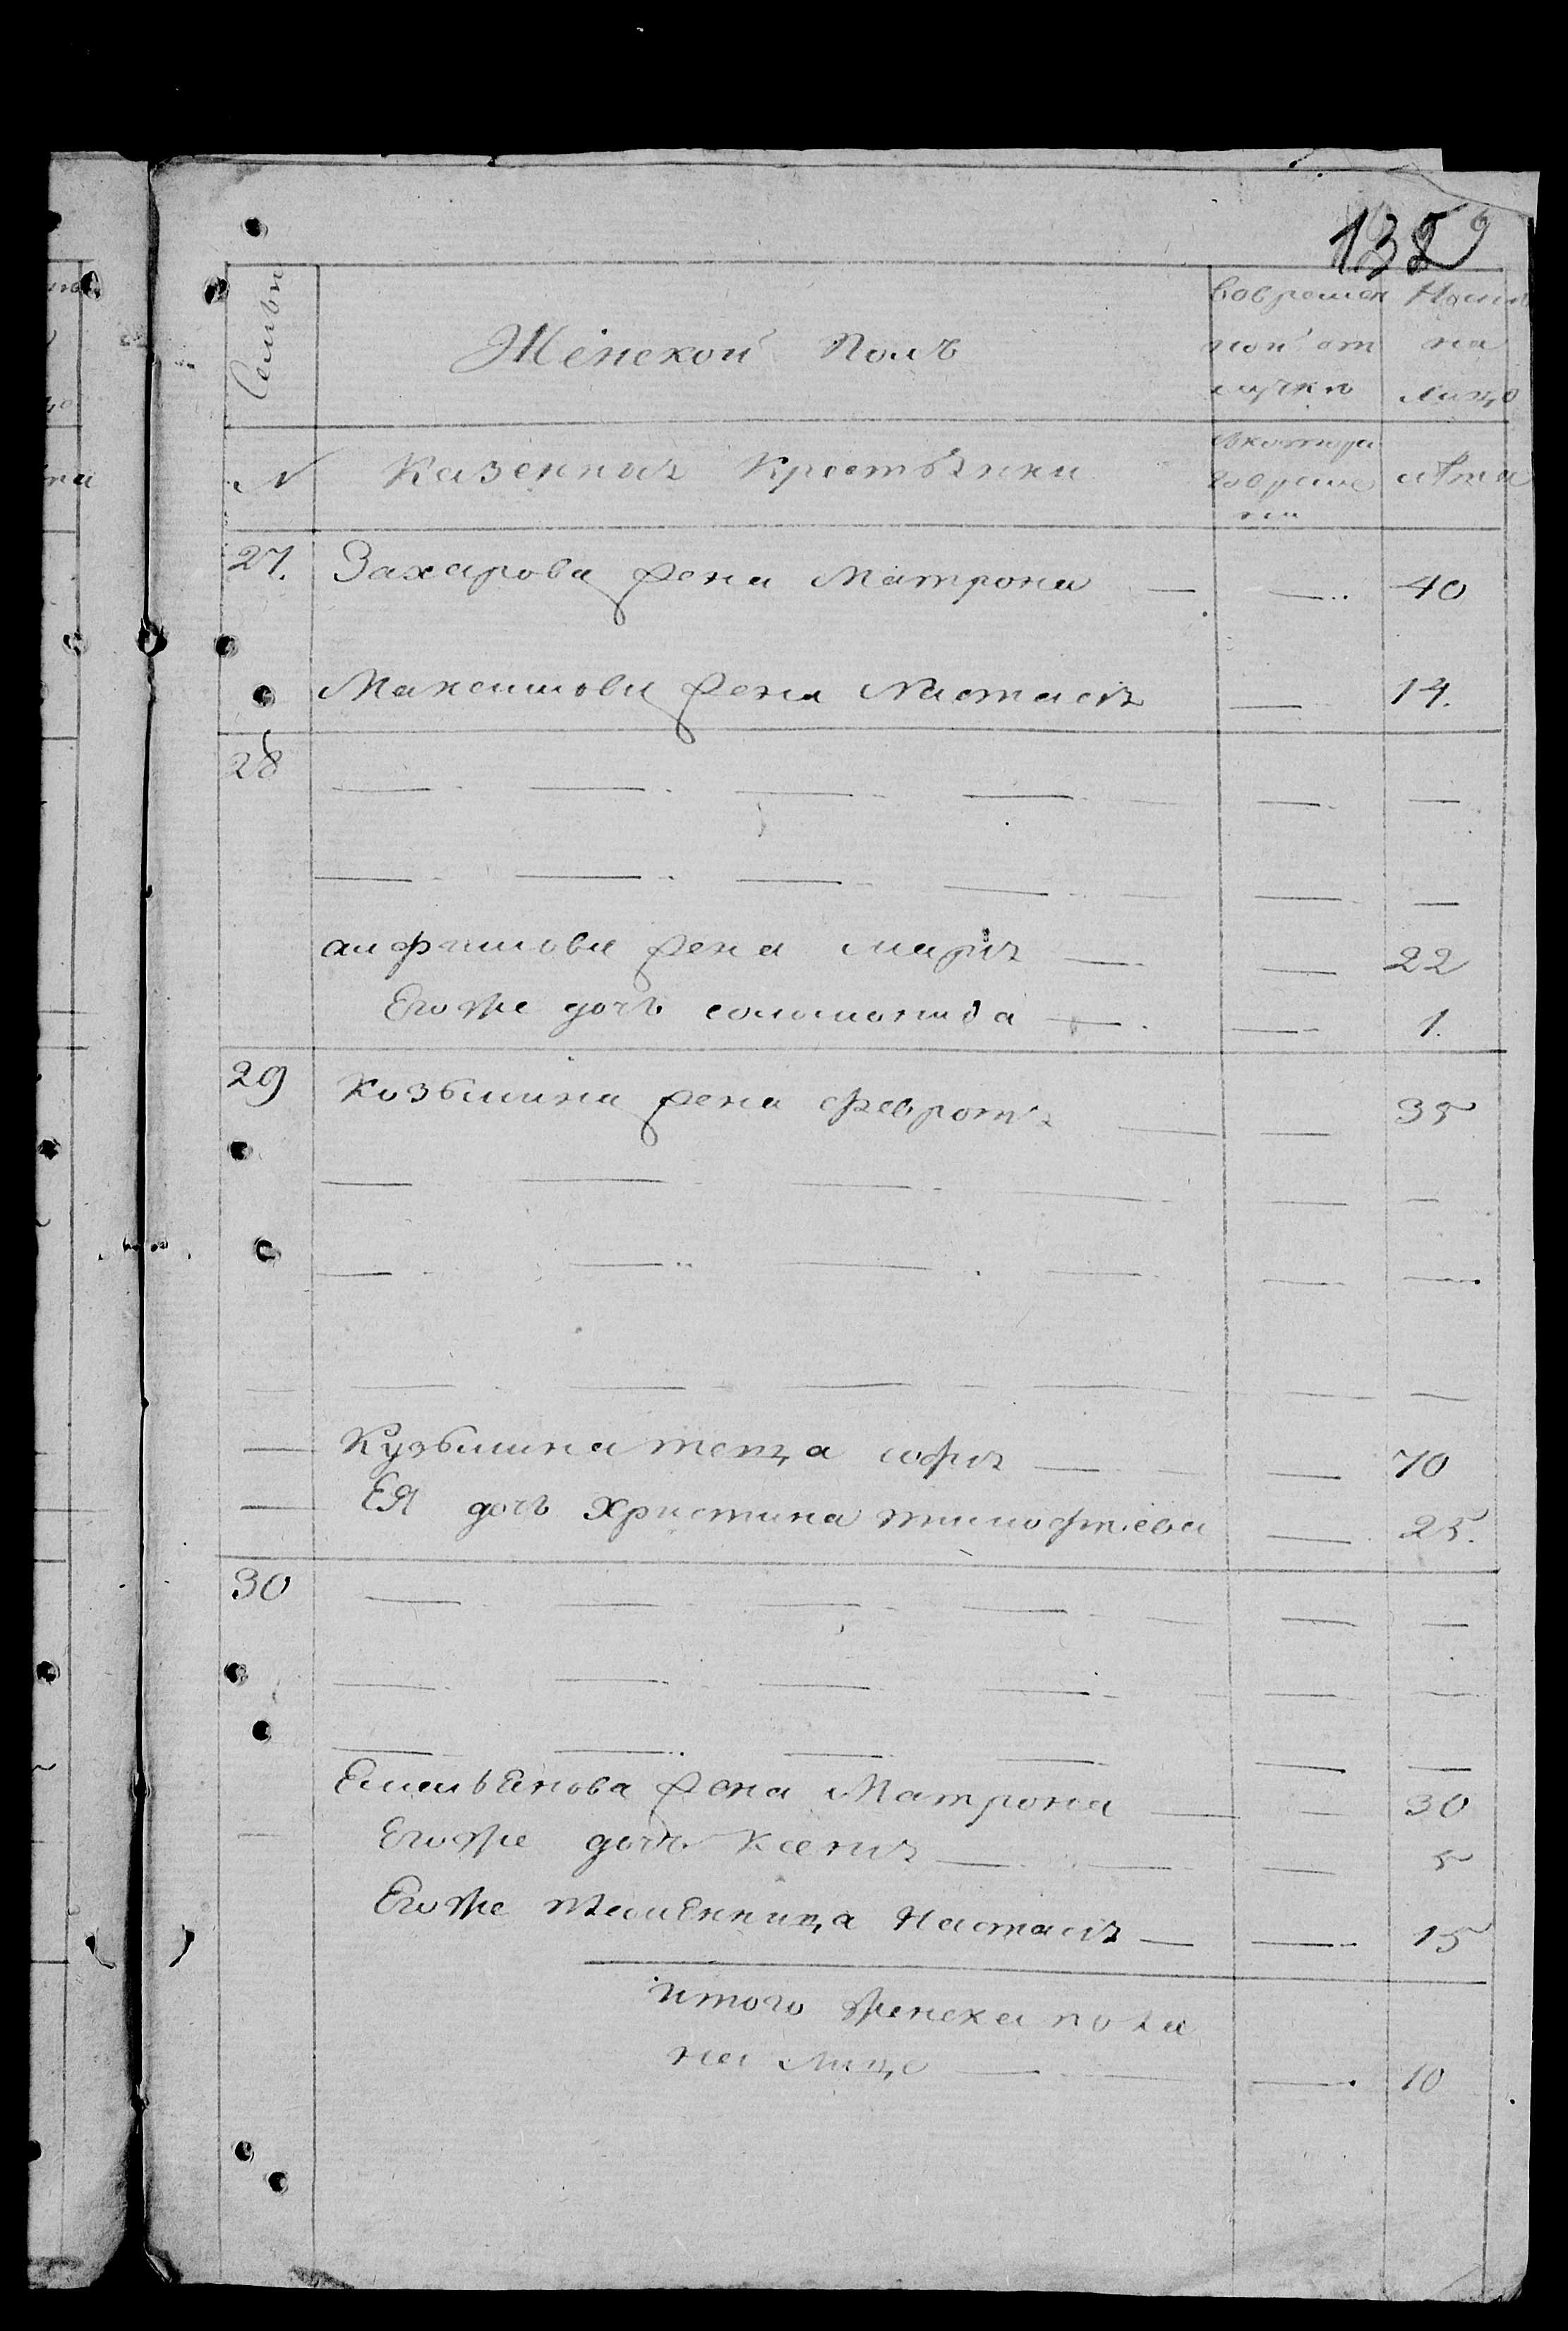 Семьи
Женской Полъ
Вовремен ной от лучкѣ
Нали на лицо
N
Казенныя Крестьянки
Скотора времени
лѣта
27. Захарова жена Матрона — — 40
Максимова жена Настасья — 14.
28 — — — — — —
— — — — — —
анфимова жена марія — — 22
Егоже дочь соломонида — — 1.
29 Козьмина жена Февронья — — 35
— — — — — —
— — — — — —
— — — — — —
— Кузьмина теща софья — — 70
— Ея дочь Христина тимофѣева — 25.
30 — — — — — —
— — — — — —
— — — — — —
Емельянова жена Матрона — — 30
— Егоже дочь Ксенья — — — 5
Егоже племенница Настасья — — 15
итого женска пола
на лицо — — — 10